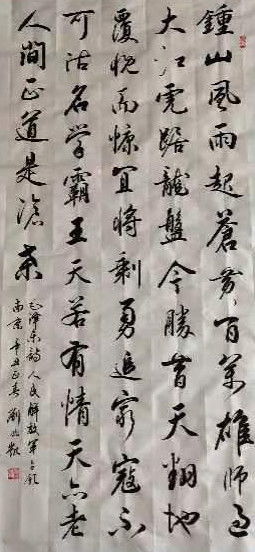 鍾山風雨起蒼黄百萬雄師過
大江虎踞龍盤今勝昔天翻地
覆慨而慷宜將剩勇追窮寇不
可沽名學霸王天若有情天亦老
人間正道是滄桑
毛澤東詩人民解放軍占領
南京辛丑春劉